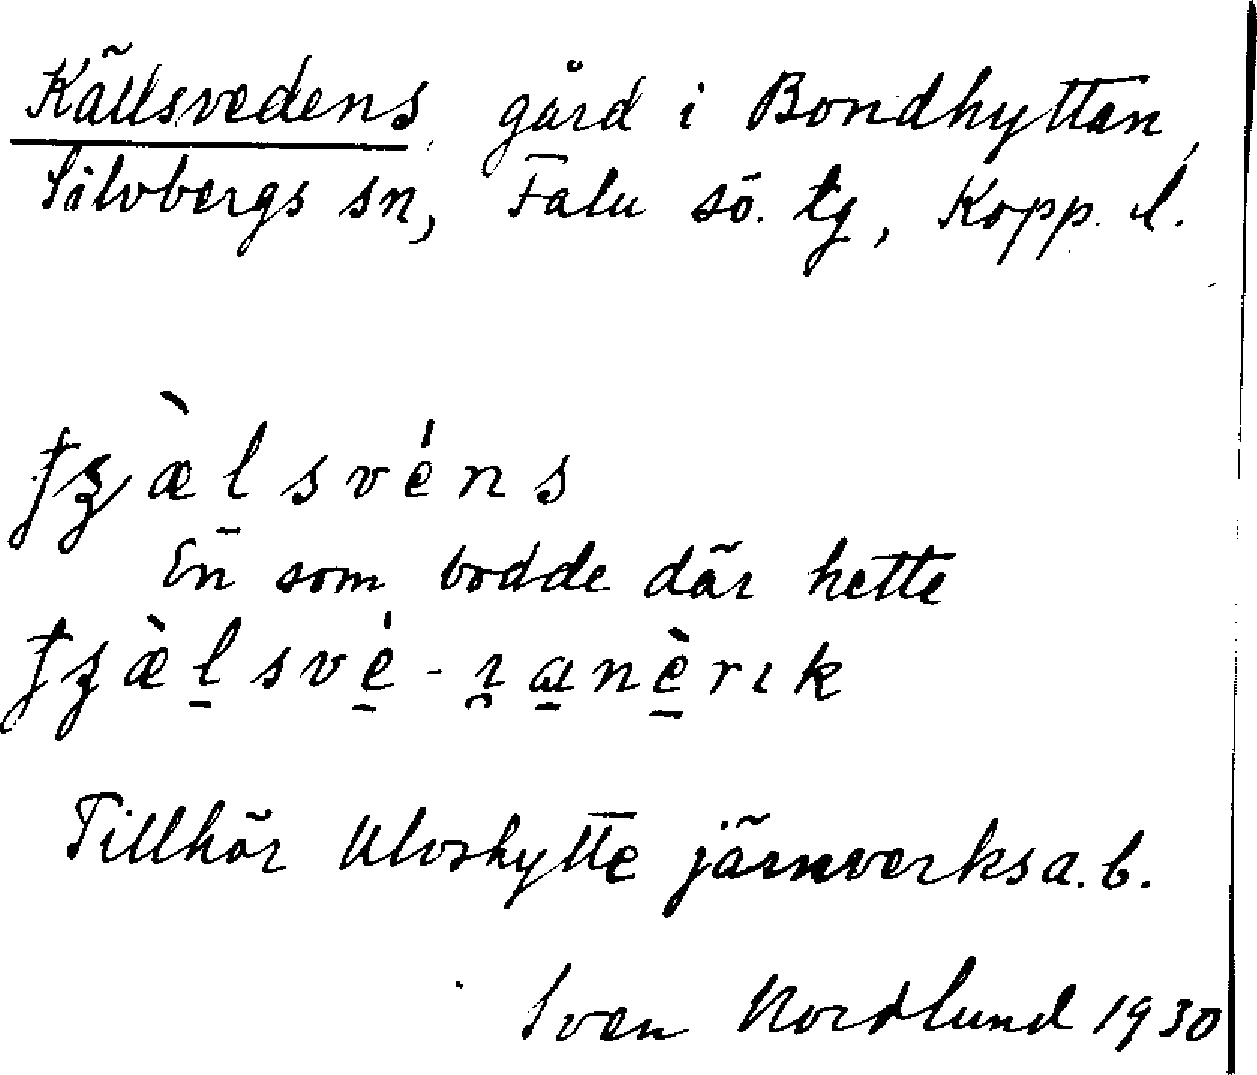 Källsvedens gård i Bondhyttan,
Silvbergs sn, Falu sö. tg, Kopp. l.
En som bodde där hette
Tillhör Ulvshytte järnverks a.b.
Sven Nordlund 1930